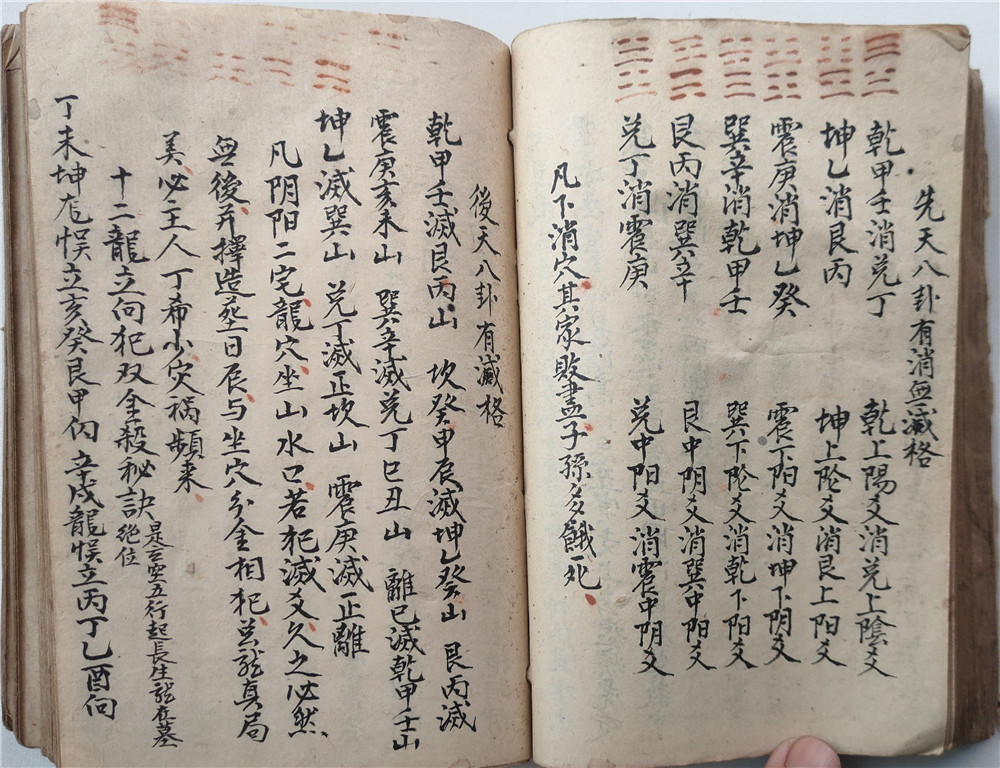 先天八卦有消無滅格
乾甲壬消兑丁 乾上陽爻消兑上陰爻
坤乙消艮丙 坤上阴爻消艮上阳爻
震庚消坤乙癸 震下阳爻消坤下阴爻
巽辛消乾甲壬 巽下阴爻消乾下阳爻
艮丙消巽辛 艮中阴爻消巽中阳爻
兑丁消震庚 兑中阳爻消震中阴爻
凡下消穴其家敗盡子孫多餓死
後天八卦有滅格
乾甲壬滅艮丙山 坎癸甲辰滅坤乙癸山 艮丙滅
震庚亥未山 巽辛滅兑丁巳丑山 離巳滅乾甲壬山
坤乙滅巽山 兑丁滅正坎山 震庚滅正離
凡阴阳二宅龍穴坐山水口若犯滅爻久之必然
無後并擇造葬日辰与坐穴分金相犯总然真局
美必主人丁希小灾禍頻来
十二龍立向犯双金殺秘訣 是玄空五行起長生龍在墓絶位
丁未坤龙悮立亥癸艮甲向 辛戌龍悮立丙丁乙酉向